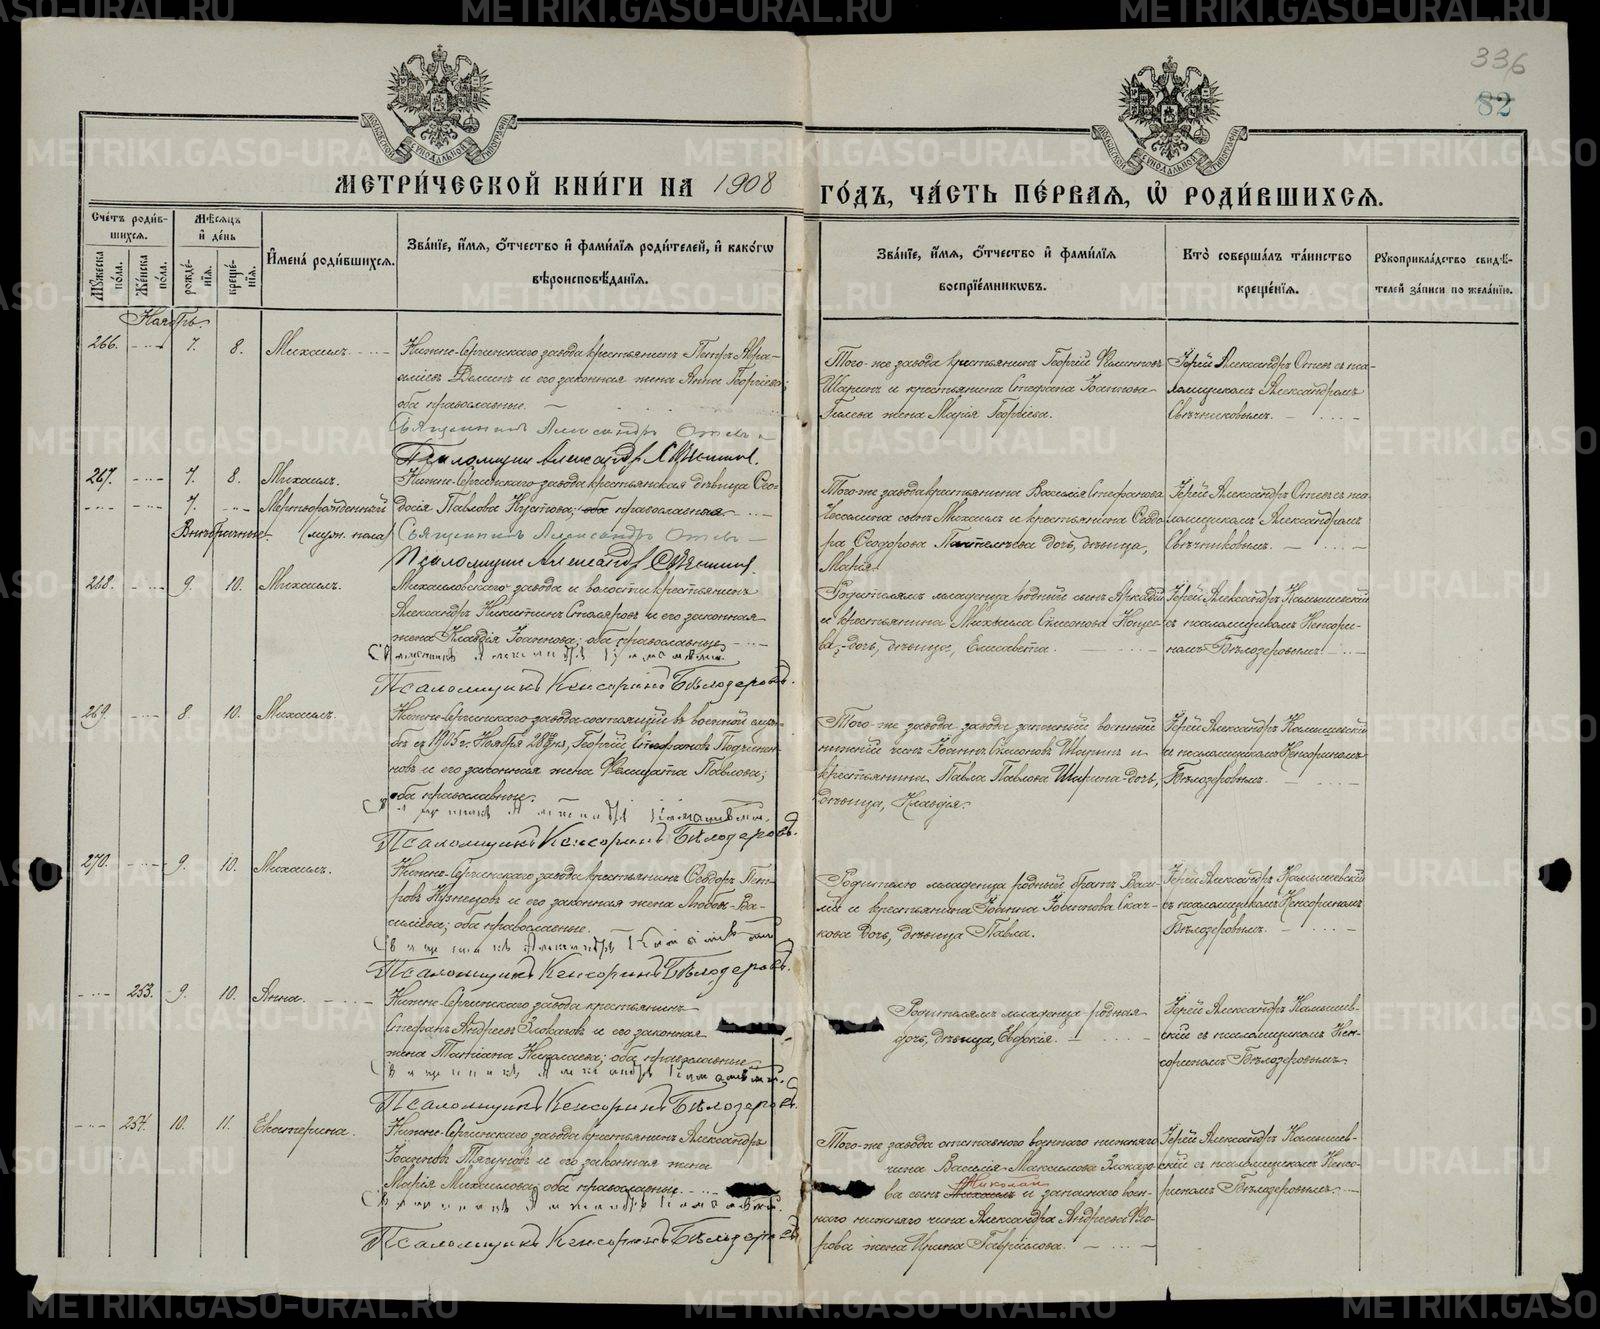 336
82
МЕТРИ́ЧЕСКОЙ КНИ́ГИ НА 1908 ГО́ДЪ, ЧА́СТЬ ПЕ́РВАЯ, Ѡ҆ РОДИ́ВШИХСѦ.
Сче́тъ роди́в-
шихсѧ.
Мꙋ́жеска по́ла.
Же́нска по́ла.
Мѣ́сѧцъ и҆ де́нь
рожде́нїѧ.
креще́нїѧ.
И҆мена̀ роди́вшихсѧ.
Зва́нїе, и҆́мѧ, ѻ҆́тчество и҆ фами́лїѧ роди́телей, и҆ како́гѡ
вѣроисповѣ́данїѧ.
Зва́нїе, и҆́мѧ, ѻ҆́тчество и҆ фами́лїѧ
воспрїе́мникѡвъ.
Кто̀ соверша́лъ та́инство
креще́нїѧ.
Рꙋкоприкла́дство свидѣ́-
телей за́писи по жела́нїю.
Ноябрь.
266. 7. 8. Михаилъ.
Нижне-Сергинскаго завода крестьянинъ Петръ Авра-
амiевъ Деминъ и его законная жена Анна Георгiева;
оба православные.
Священникъ Александръ Отевъ
Псаломщик Александр Свѣчников.
Того-же завода крестьянинъ Георгiй Филипповъ
Шаринъ и крестьянина Стефана Iоаннова
Гилева жена Марiя Георгiева.
Iерей Александръ Отевъ съ пса-
ломщикомъ Александромъ
Свѣчниковымъ.
267. 7. 8. Михаилъ.
7. Мертворожденный
Внѣбрачные (муж. пола)
Нижне-Сергинскаго завода крестьянская дѣвица Ѳео-
досiя Павлова Кустова; оба православная.
Священникъ Александръ Отевъ
Псаломщик Александр Свѣчников.
Того-же завода крестьянина Василiя Стефанова
сынъ Михаилъ и крестьянина Ѳеодо-
ра Ѳеодорова Пантелѣева дочь, дѣвица,
Марiя.
Iерей Александръ Отевъ съ пса-
ломщикомъ Александромъ
Свѣчниковымъ.
268. 9. 10. Михаилъ.
Михайловскаго завода и волости крестьянинъ
Александръ Никитинъ Столяровъ и его законная
жена Клавдiя Iоаннова; оба православные.
Священникъ Александръ Камышевскiй.
Псаломщикъ Кенсоринъ Бѣлозеровъ.
Родителямъ младенца родный сынъ Аркадiй
и крестьянина Михаила Симонова
ва, дочь, дѣвица, Елисавета.
Iерей Александръ Камышевскiй
съ псаломщикомъ Кенсори-
номъ Бѣлозеровымъ.
269. 8. 10. Михаилъ.
Нижне-Сергинскаго завода состоящiй въ военной служ-
бѣ съ 1905 г. Ноября 28 дня, Георгiй Стефановъ Подчинен-
новъ и его законная жена Фелицата Павлова;
оба православные.
Священникъ Александръ Камышевскiй.
Псаломщикъ Кенсоринъ Бѣлозеровъ.
Того-же завода завода запасный военный
нижнiй чинъ Iоаннъ Симоновъ Шаринъ и
крестьянина Павла Павлова Ширина-дочь,
дѣвица, Клавдiя.
Iерей Александръ Камышевскiй
съ псаломщикомъ Кенсориномъ
Бѣлозеровымъ.
270. 9. 10. Михаилъ.
Нижне-Сергинскаго завода крестьянинъ Ѳеодоръ Пет-
ровъ Кузнецовъ и его законная жена Любовь Ва-
силiева; оба православные.
Священникъ Александръ Камышевскiй
Псаломщикъ Кенсоринъ Бѣлозеровъ.
Родителю младенца родный братъ Васи-
лiй и крестьянина Iоанна Iоаннова Скач-
кова дочь, дѣвица Павла.
Iерей Александръ Камышевскiй
съ псаломщикомъ Кенсориномъ
Бѣлозеровымъ.
253. 9. 10. Анна.
Нижне-Сергинскаго завода крестьянинъ
Стефанъ Андреевъ Злоказовъ и его законная
жена Татiана Николаева; оба православные
Священникъ Александръ Камышевскiй.
Псаломщикъ Кенсоринъ Бѣлозеровъ.
Родителямъ младенца-родная
дочь, дѣвица, Евдокiя.
Iерей Александръ Камышев-
скiй съ псаломщикомъ Кен-
сориномъ Бѣлозеровымъ.
254. 10. 11. Екатерина.
Нижне-Сергинскаго завода крестьянинъ Александръ
Iоанновъ Тягуновъ и его законная жена
Марiя Михаилова; оба православные.
Священникъ Александръ Камышевскiй.
Псаломщикъ Кенсоринъ Бѣлозеровъ.
Того-же завода отставного военнаго нижняго
чина Василiя Максимова Злоказо-
ва сынъ Михаилъ Николай и запаснаго воен-
наго нижняго чина Александра Андреева Фло-
рова жена Ирина Гаврiилова.
Iерей Александръ Камышев-
скiй съ псаломщикомъ Кенсо-
риномъ Бѣлозеровымъ.
METRIKI.GASO-URAL.RU